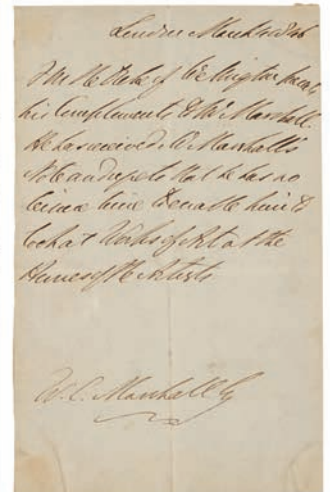 London March
F M The Duke of Wellington presents
his Compliments to Mr Marshall.
He has received Mr Marshall's
Note and regrets that he has no
leisure time to enable him to
look at Works of Art at the
Houses of the Artists
W. C. Marshall Esq